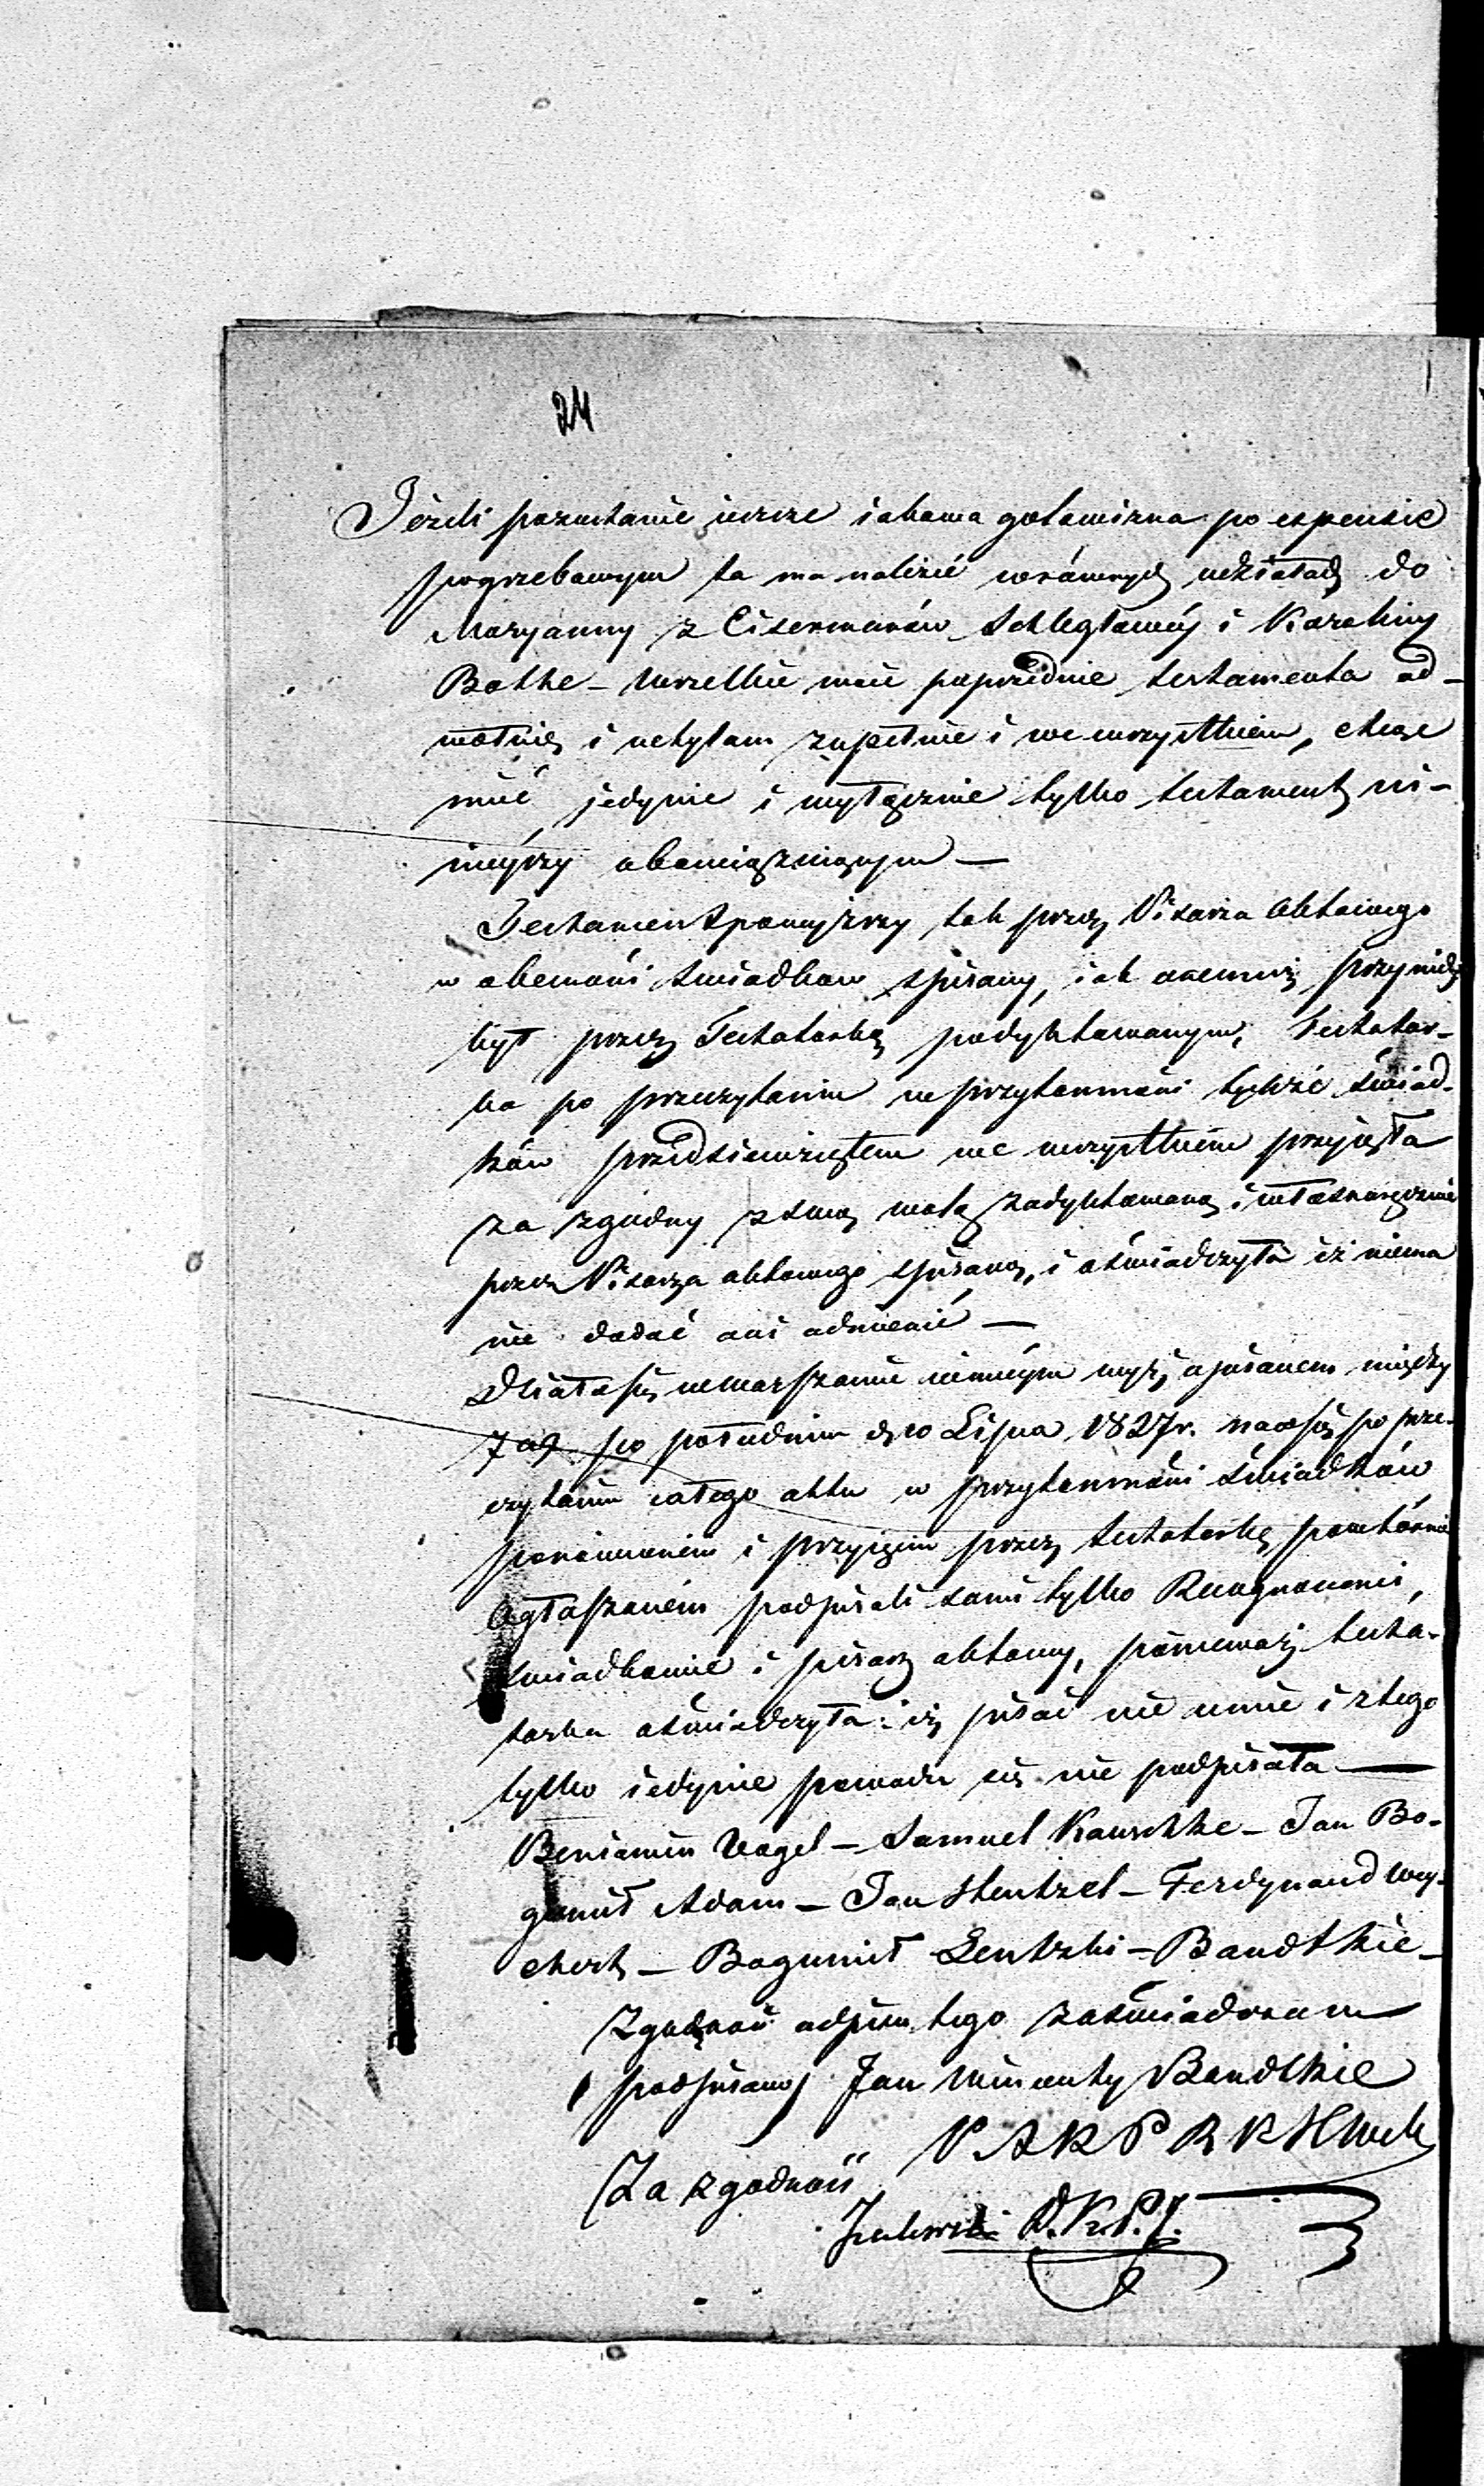 24
Jeżeli pozostanie ieszcze iakowa gotowizna po expensie
pogrzebowym ta ma należeć w równych udziałach do
Maryanny z Eisermanów Schlegtowéy i Karoliny
Bothe – Wszelkie moie poprzednie testamenta od-
wołuię i uchylam zupełnie i we wszystkiem, chcąc
mieć jedynie i wyłącznie tylko testament ni-
nieyszy obowiązuiącym —
Testament powyższy tak przez Pisarza Aktowego
w obecności świadków spisany, iak onemuż
był przez Testatorkę podyktowanym, Testator-
ka po przeczytaniu w przytomności tychże świad-
ków przedsięwziętem we wszystkiem przyjęła
za zgodny z swą wolą zadyktowaną i własnoręcznie
przez Pisarza aktowego spisaną, i oświadczyła iż niema
nic dodać ani odmienić —
Działo się w Warszawie w wyż opisanem między
7 a 9 po południu d. 10 Lipca 1827 r. na co się po prze-
czytaniu całego aktu w przytomności świadków
ponowionem i przyięciu przez testatorkę powtórnie
ogłaszanem podpisali sami tylko Rekognowanci,
świadkowie i pisarz aktowy, ponieważ testa-
torka oświadczyła: iż pisać nie umie i z tego
tylko iedynie powodu się nie podpisała —
Beniamin Vogel – Samuel Kauschke – Jan Bo-
gumił Adam – Jan Hentzel – Ferdynand Wey-
chert – Bogumił Lentzki – Bandtkie –
Zgodność odpisu tego zaświadczam
(podpisano) Jan Wincenty Bandtkie
P A K P
Za zgodność